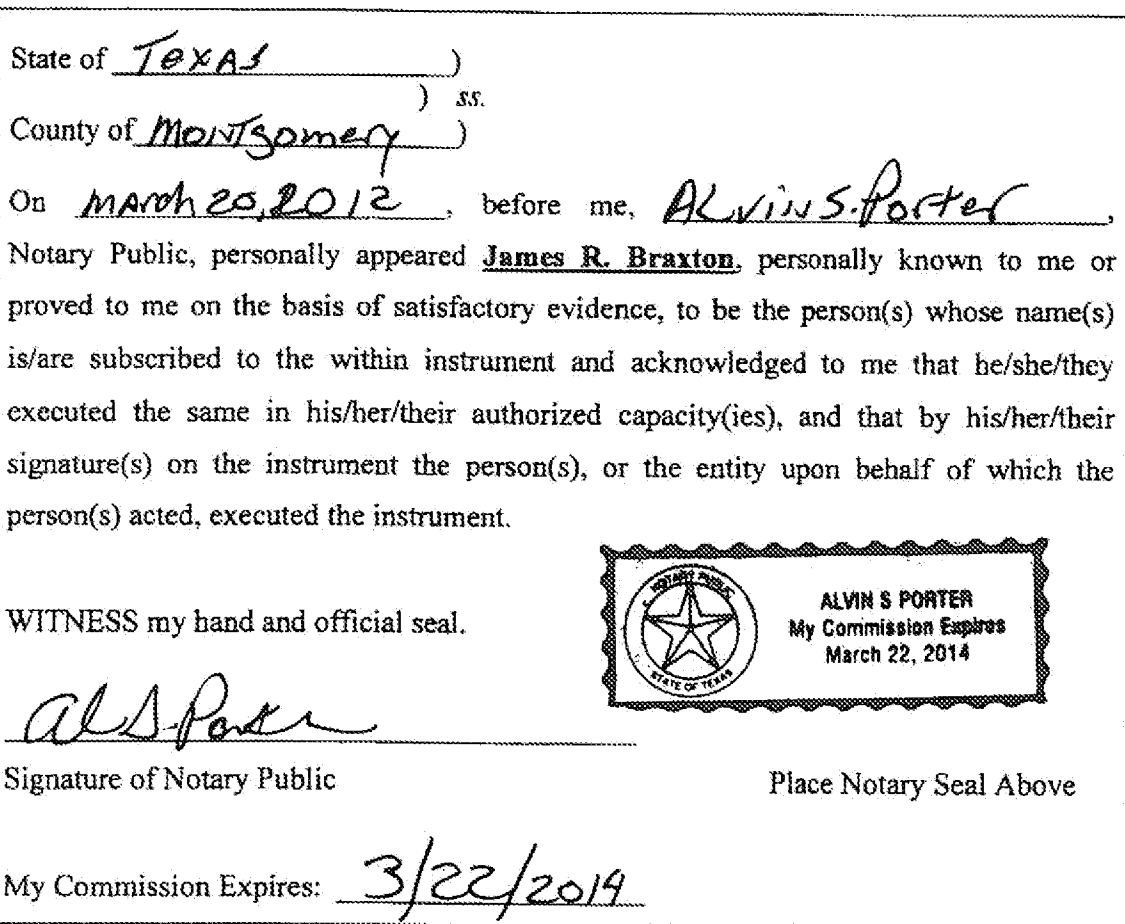 State of Texas )
) ss.
County of Montgomery )
On March 20, 2012, before me, Alvin S. Porter,
Notary Public, personally appeared James R. Braxton, personally known to me or
proved to me on the basis of satisfactory evidence, to be the person(s) whose name(s)
is/are subscribed to the within instrument and acknowledged to me that he/she/they
executed the same in his/her/their authorized capacity(ies), and that by his/her/their
signature(s) on the instrument the person(s), or the entity upon behalf of which the
person(s) acted, executed the instrument.
WITNESS my hand and official seal.
NOTARY PUBLIC
STATE OF TEXAS
ALVIN S PORTER
My Commission Expires
March 22, 2014
Al S. Porter
Signature of Notary Public
Place Notary Seal Above
My Commission Expires: 3/22/2014